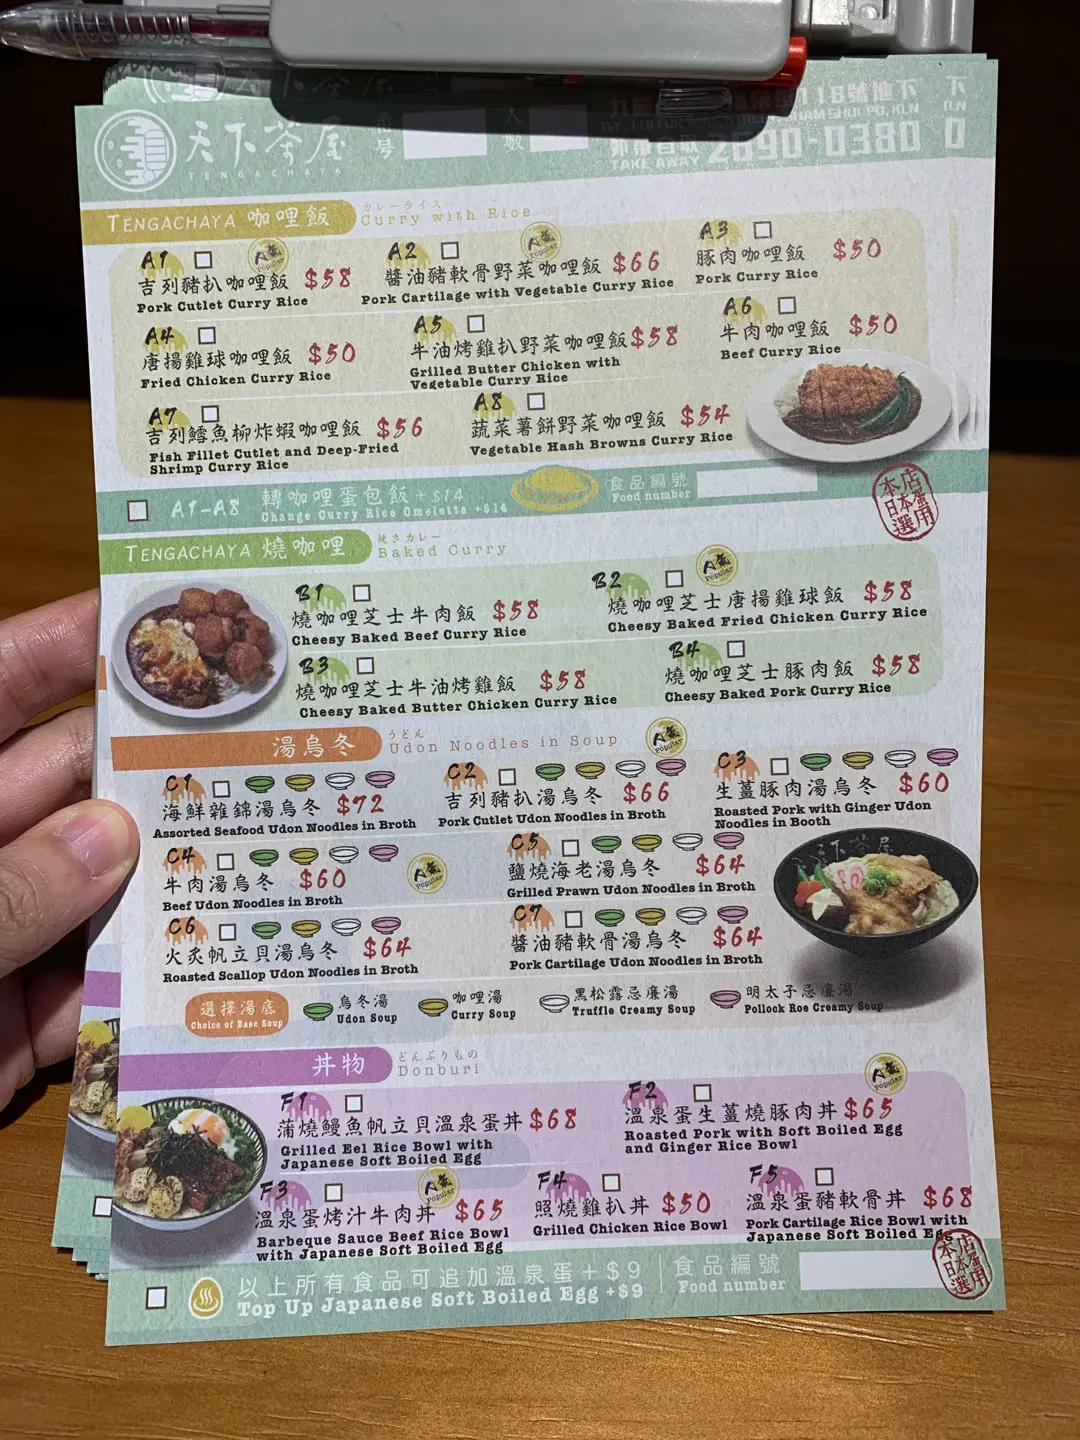 天下茶屋
TENGACHAYA
號
人
數
118號地下
TAKE AWAY 2690-0380
TENGACHAYA 咖哩飯
カレーライス
Curry with Rice
A1 人氣 Popular
吉列豬扒咖哩飯 $58
Pork Cutlet Curry Rice
A2 人氣 Popular
醬油豬軟骨野菜咖哩飯 $66
Pork Cartilage with Vegetable Curry Rice
A3
豚肉咖哩飯 $50
Pork Curry Rice
A4
唐揚雞球咖哩飯 $50
Fried Chicken Curry Rice
A5
牛油烤雞扒野菜咖哩飯 $58
Grilled Butter Chicken with
Vegetable Curry Rice
A6
牛肉咖哩飯 $50
Beef Curry Rice
A7
吉列鱈魚柳炸蝦咖哩飯 $56
Fish Fillet Cutlet and Deep-Fried
Shrimp Curry Rice
A8
蔬菜薯餅野菜咖哩飯 $54
Vegetable Hash Browns Curry Rice
A1-A8 轉咖哩蛋包飯 + $14
Change Curry Rice Omelette +$14
食品編號
Food number
本店
日本蛋
選用
TENGACHAYA 燒咖哩
焼きカレー
Baked Curry
B1
燒咖哩芝士牛肉飯 $58
Cheesy Baked Beef Curry Rice
B2 人氣 Popular
燒咖哩芝士唐揚雞球飯 $58
Cheesy Baked Fried Chicken Curry Rice
B3
燒咖哩芝士牛油烤雞飯 $58
Cheesy Baked Butter Chicken Curry Rice
B4
燒咖哩芝士豚肉飯 $58
Cheesy Baked Pork Curry Rice
湯烏冬
うどん
Udon Noodles in Soup
人氣 Popular
C1
海鮮雜錦湯烏冬 $72
Assorted Seafood Udon Noodles in Broth
C2
吉列豬扒湯烏冬 $66
Pork Cutlet Udon Noodles in Broth
C3
生薑豚肉湯烏冬 $60
Roasted Pork with Ginger Udon
Noodles in Booth
C4
牛肉湯烏冬 $60
Beef Udon Noodles in Broth
人氣 Popular
C5
鹽燒海老湯烏冬 $64
Grilled Prawn Udon Noodles in Broth
C6
火炙帆立貝湯烏冬 $64
Roasted Scallop Udon Noodles in Broth
C7
醬油豬軟骨湯烏冬 $64
Pork Cartilage Udon Noodles in Broth
天下茶屋
選擇湯底
Choice of Base Soup
烏冬湯
Udon Soup
咖哩湯
Curry Soup
黑松露忌廉湯
Truffle Creamy Soup
明太子忌廉湯
Pollock Roe Creamy Soup
丼物
どんぶりもの
Donburi
F1
蒲燒鰻魚帆立貝溫泉蛋丼 $68
Grilled Eel Rice Bowl with
Japanese Soft Boiled Egg
F2 人氣 Popular
溫泉蛋生薑燒豚肉丼 $65
Roasted Pork with Soft Boiled Egg
and Ginger Rice Bowl
F3 人氣 Popular
溫泉蛋烤汁牛肉丼 $65
Barbeque Sauce Beef Rice Bowl
with Japanese Soft Boiled Egg
F4
照燒雞扒丼 $50
Grilled Chicken Rice Bowl
F5
溫泉蛋豬軟骨丼 $68
Pork Cartilage Rice Bowl with
Japanese Soft Boiled Egg
以上所有食品可追加溫泉蛋 + $9
Top Up Japanese Soft Boiled Egg +$9
食品編號
Food number
本店
日本蛋
選用